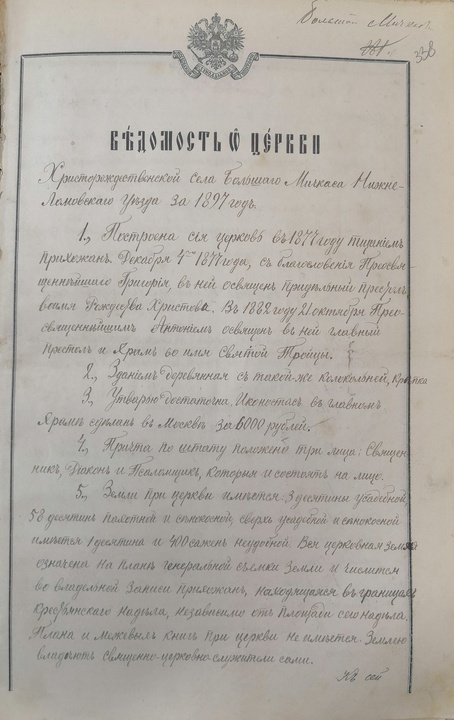 Большой Мичкас
338
ВѢДОМОСТЬ Ѿ ЦЕРКВИ
Христорождественской села Большаго Мичкаса Нижне-
Ломовскаго уѣзда за 1897 годъ.
1., Построена сія церковь въ 1877 году тщаніемъ
прихожанъ. Декабря 4го 1877 года, съ благословенія Преосвя-
щеннѣйшаго Григорія, въ ней освященъ придѣльный престолъ
во имя Рождества Христова. Въ 1882 году 21 октября Прео-
священнѣйшимъ Антоніемъ освященъ въ ней главный
престолъ и храмъ во имя Святой Троицы.
2., Зданіемъ деревянная съ такой-же колокольней, крѣпка
3., Утварію достаточна. Иконостасъ въ главномъ
храмѣ сдѣланъ въ Москвѣ за 6000 рублей.
4., Причта по штату положено три лица: Священ-
никъ, Діаконъ и Псаломщикъ, которыи и состоятъ на лицо.
5., Земли при церкви имѣется: 3 десятины усадебной,
58 десятинъ пахотной и сѣнокосной, сверхъ усадебной и сѣнокосной
имѣется 1 десятина и 400 сажень неудобной. Вся церковная Земля
означена на планѣ генеральной съемки Земли и числится
во владѣльной Записи прихожанъ, находящихся въ границахъ
крестьянскаго надѣла, независимо отъ площади сего надѣла.
Плана и межевыхъ книгъ при церкви не имѣется. Землею
владѣютъ священно-церковно-служители сами.
Къ сей